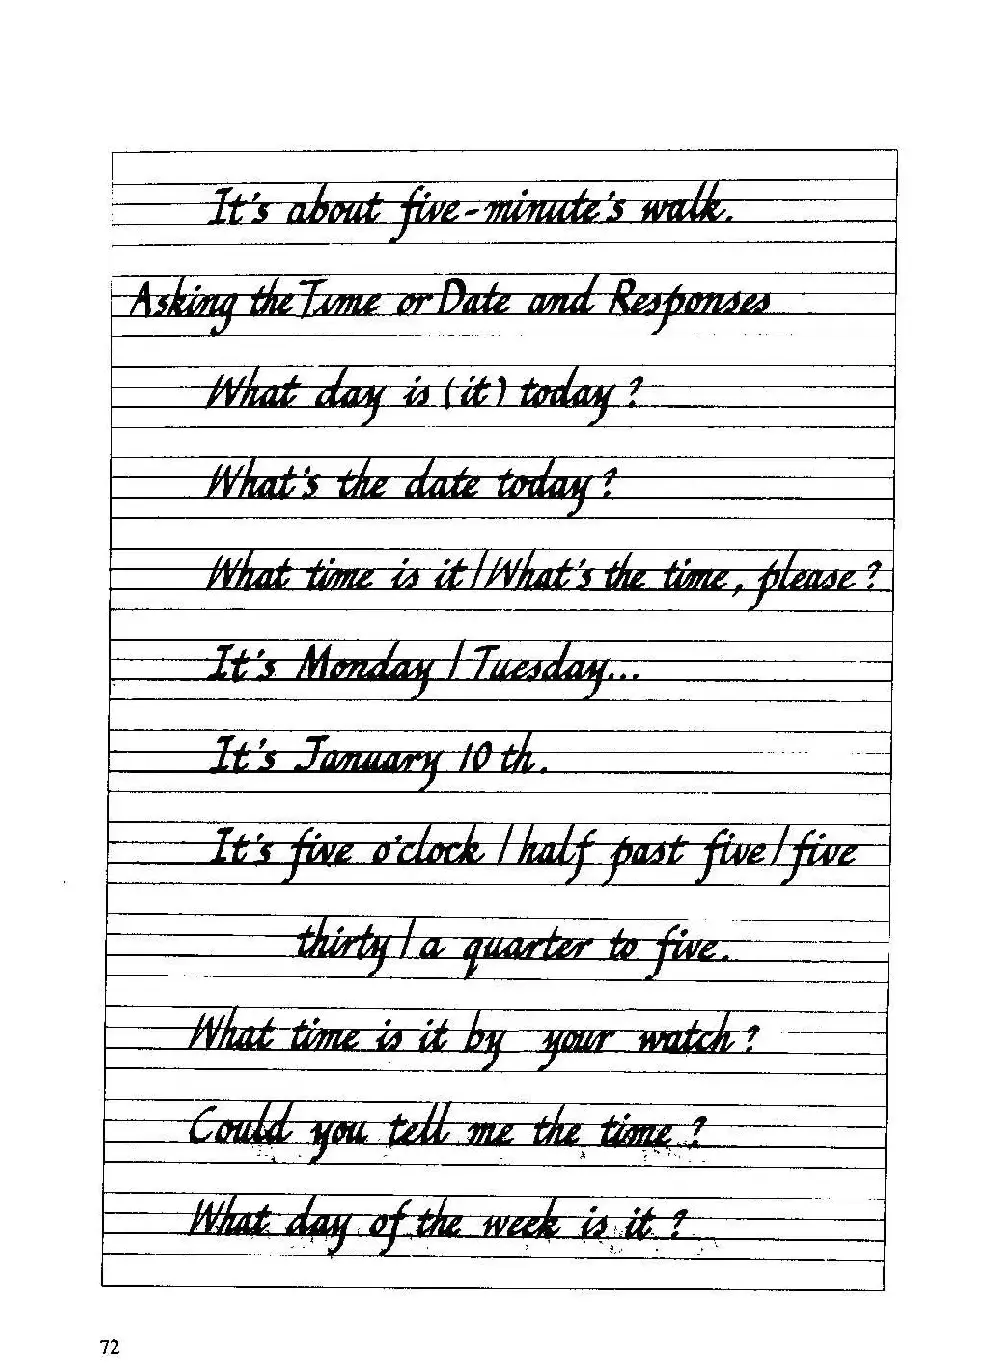 It's about five-minute's walk.
Asking the Time or Date and Responses
What day is (it) today?
What's the date today?
What time is it / What's the time, please?
It's Monday / Tuesday...
It's January 10th.
It's five o'clock / half past five / five
thirty / a quarter to five.
What time is it by your watch?
Could you tell me the time?
What day of the week is it?
72